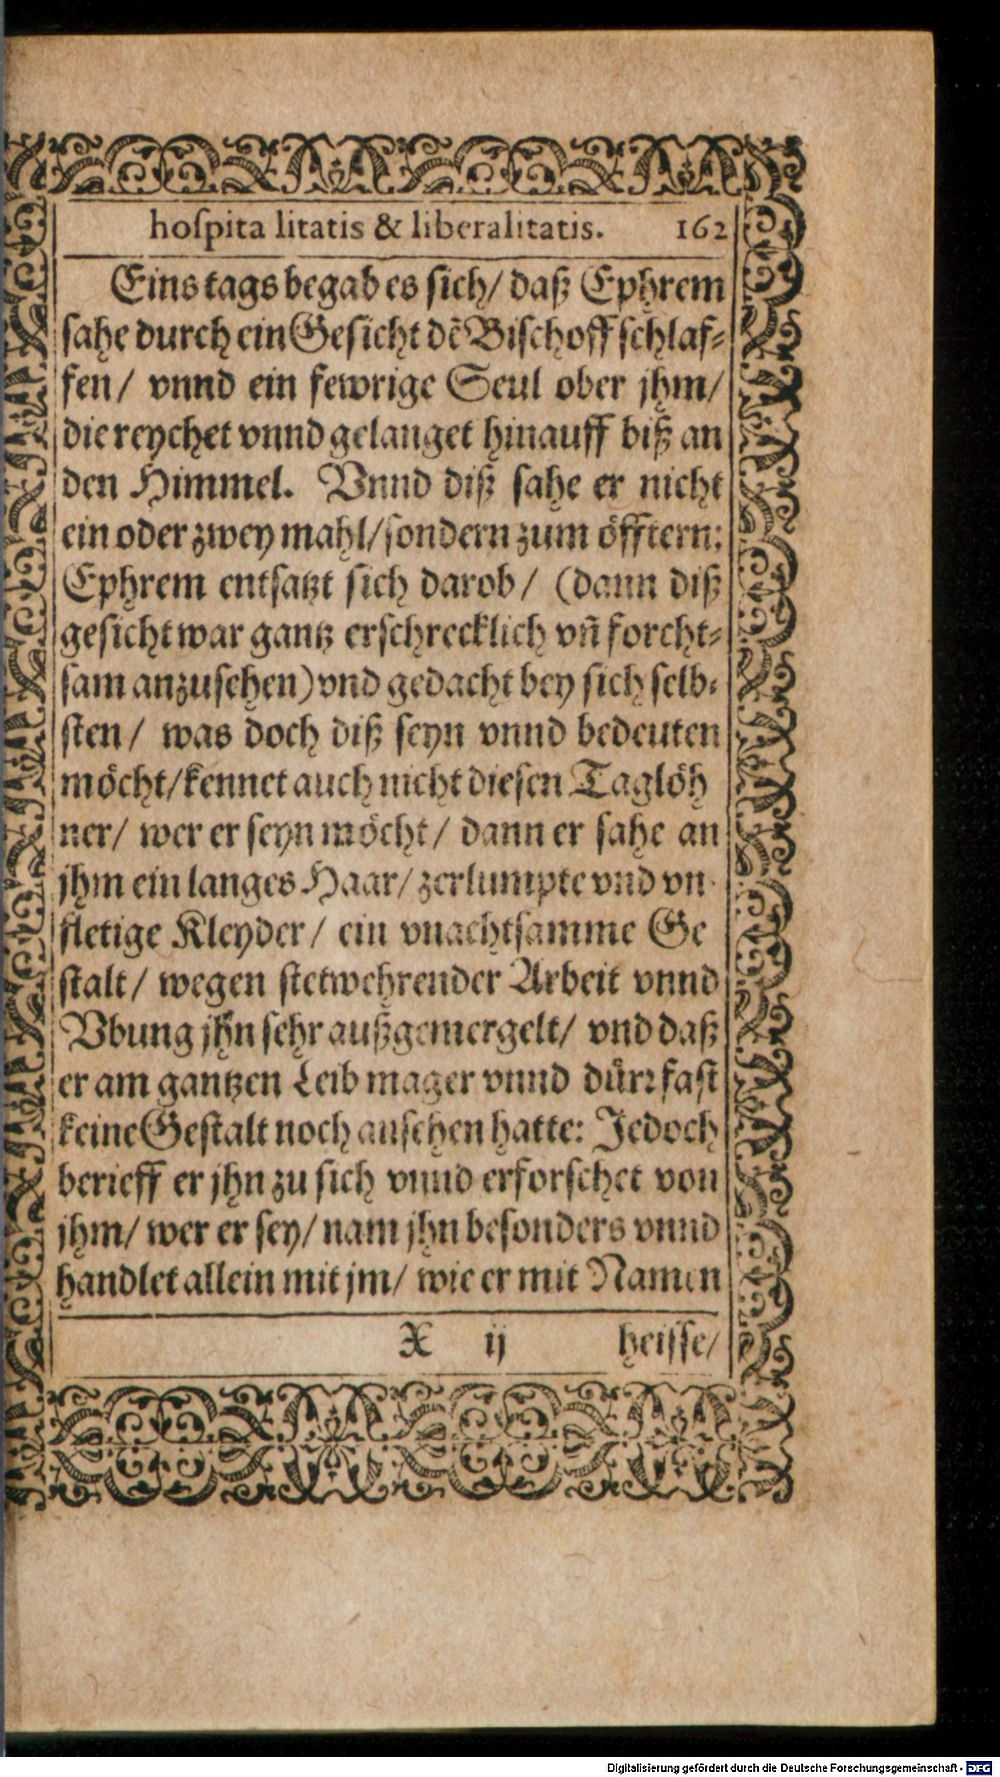 hoſpita litatis & liberalitatis. 162
Eins tags begab es ſich/ daß Ephrem
ſahe durch ein Geſicht dẽ Biſchoff ſchlaf⸗
fen/ vnnd ein fewrige Seul ober jhm/
die reychet vnnd gelanget hinauff biß an
den Himmel. Vnnd diß ſahe er nicht
ein oder zwey mahl/ ſondern zum öfftern:
Ephrem entſatzt ſich darob/ (dann diß
geſicht war gantz erſchrecklich vñ forcht⸗
ſam anzuſehen) vnd gedacht bey ſich ſelb⸗
ſten/ was doch diß ſeyn vnnd bedeuten
möcht/ kennet auch nicht dieſen Taglöh
ner/ wer er ſeyn möcht/ dann er ſahe an
jhm ein langes Haar/ zerlumpte vnd vn⸗
fletige Kleyder/ ein vnachtſamme Ge
ſtalt/ wegen ſtetwehrender Arbeit vnnd
Vbung jhn ſehr außgemergelt/ vnd daß
er am gantzen Leib mager vnnd dürꝛ faſt
keine Geſtalt noch anſehen hatte: Jedoch
berieff er jhn zu ſich vnnd erforſchet von
jhm/ wer er ſey/ nam jhn beſonders vnnd
handlet allein mit jm/ wie er mit Namen
X ij heiſſe/
Digitalisierung gefördert durch die Deutsche Forschungsgemeinschaft - DFG